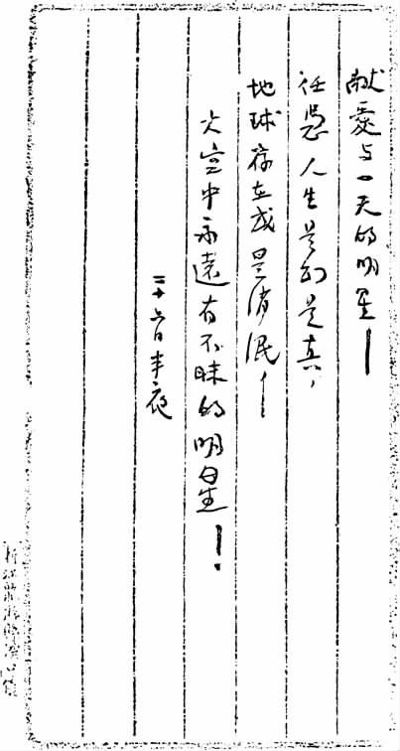 献爱与一天的明星——
任凭人生是幻是真,
地球存在或是消泯——
太空中永远有不昧的明星!
二十六日半夜